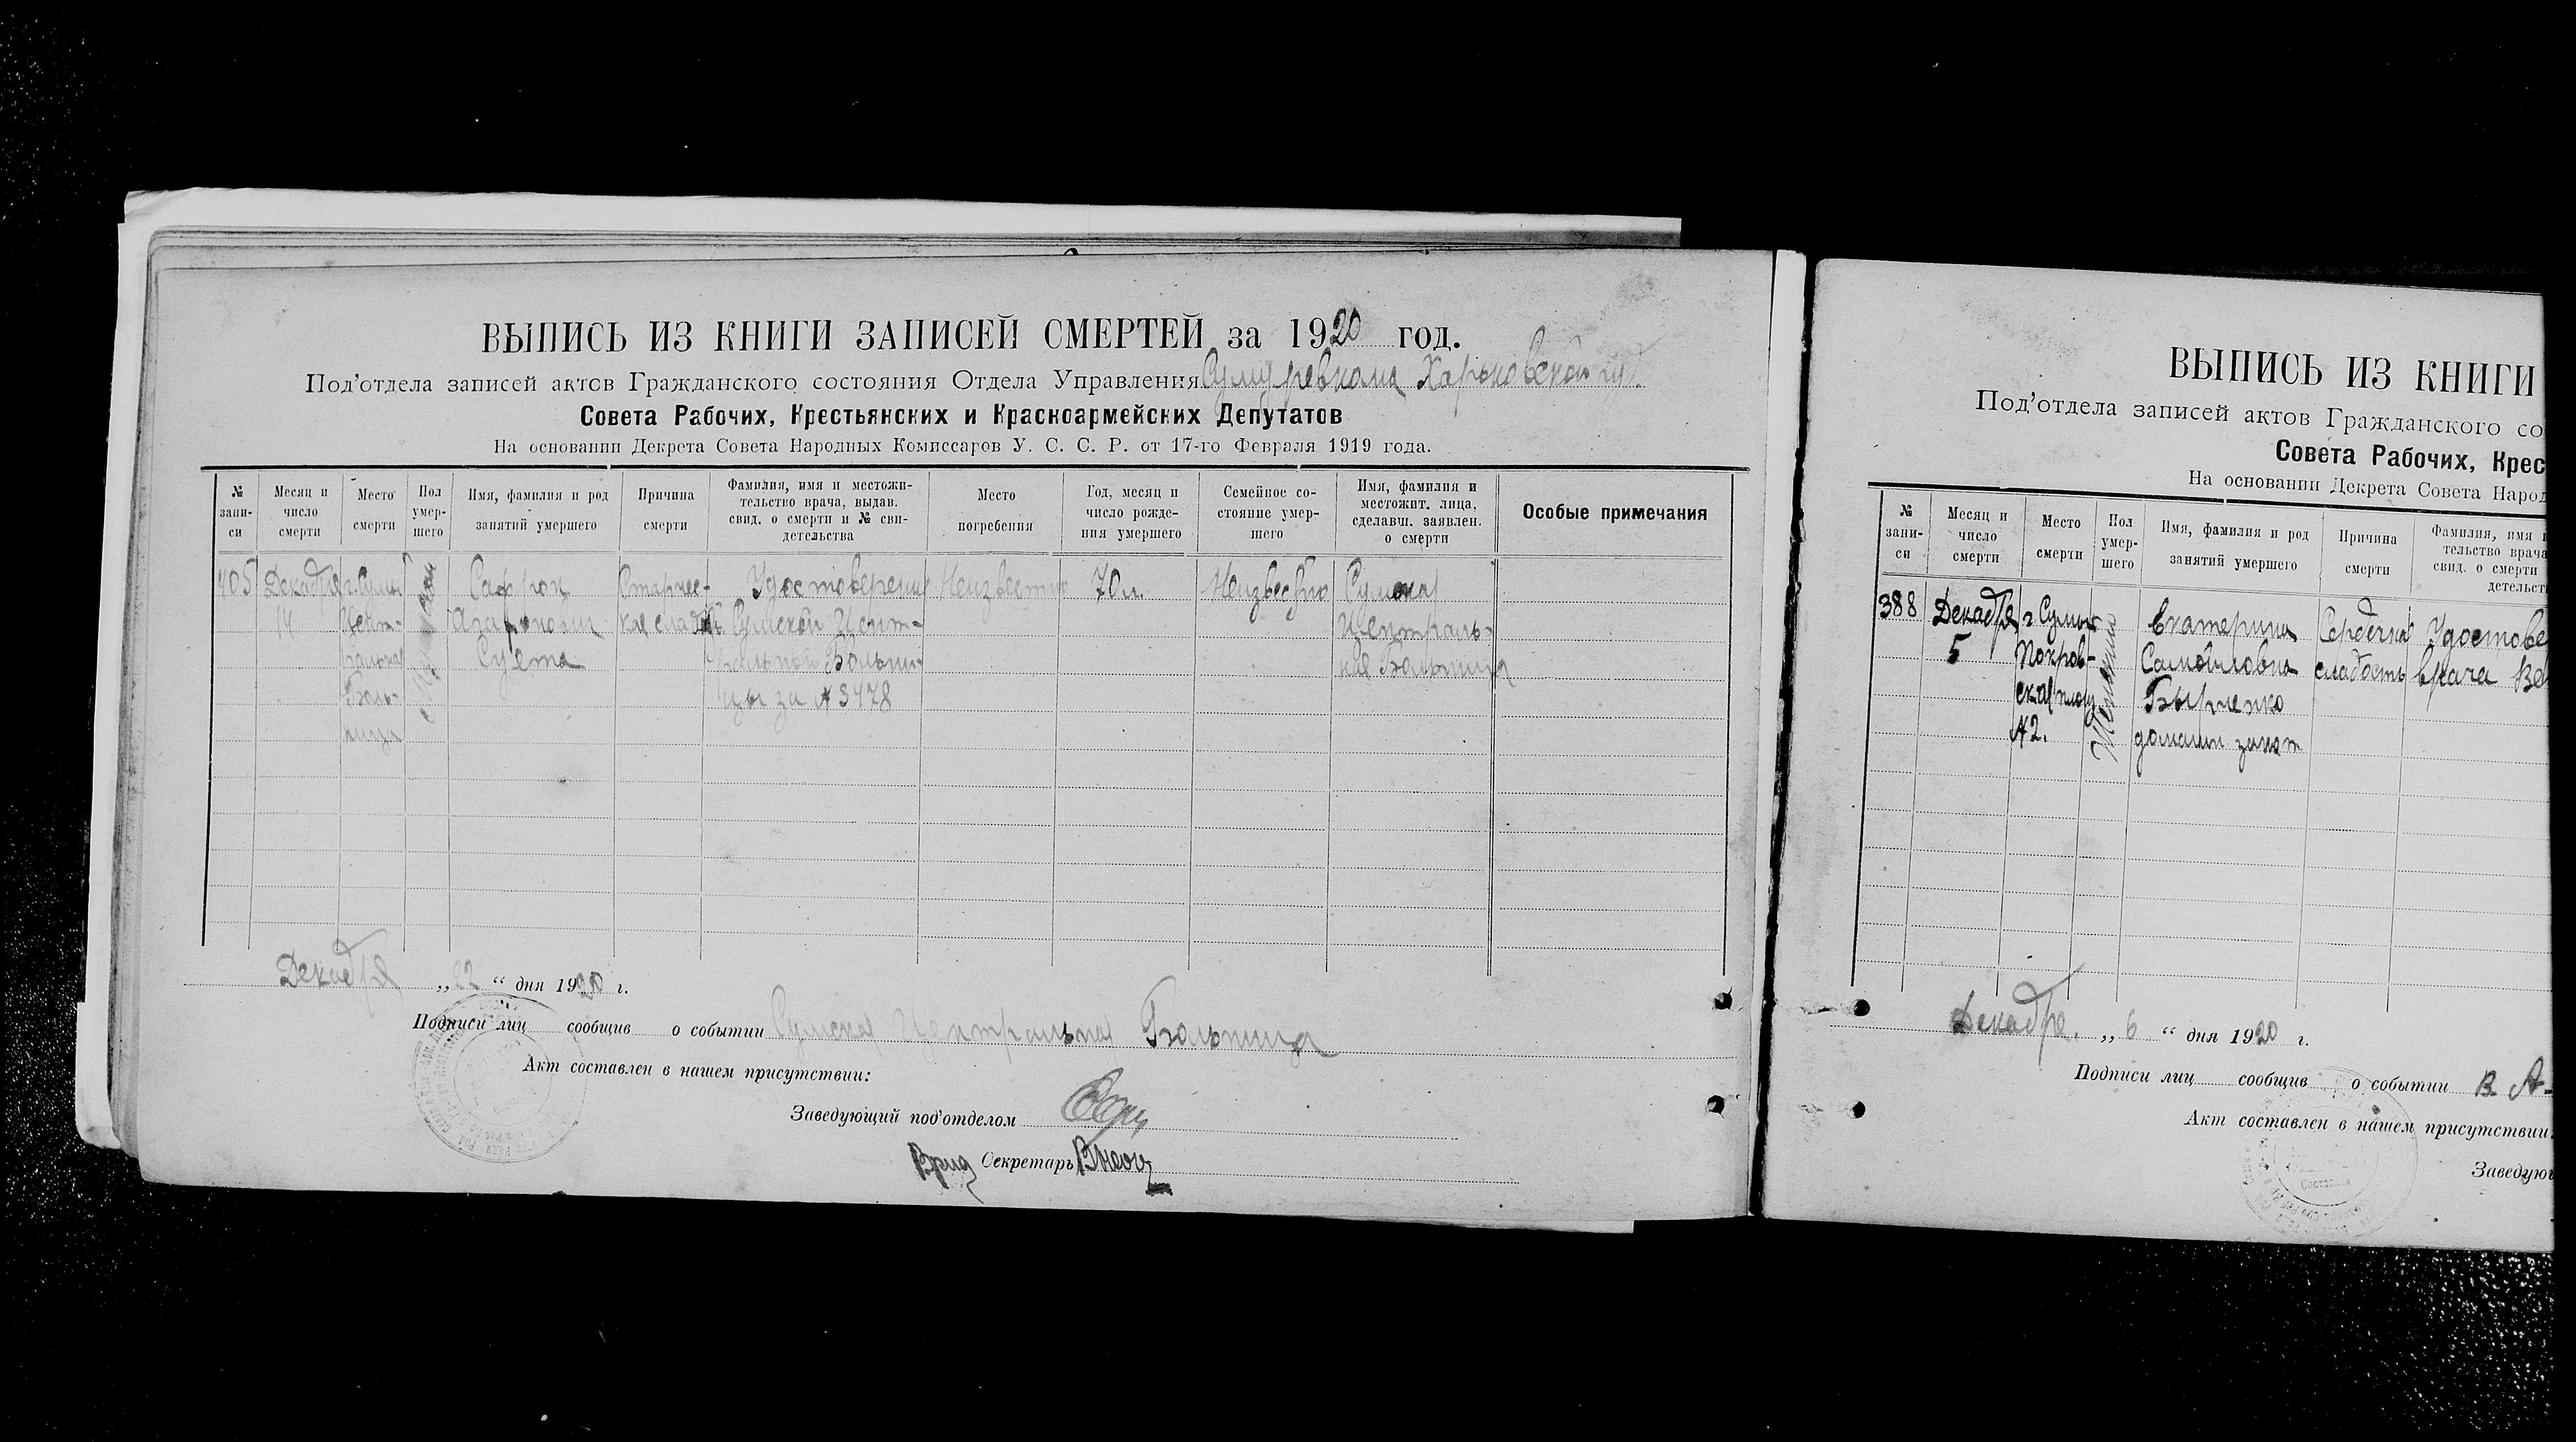 ВЫПИСЬ ИЗ КНИГИ ЗАПИСЕЙ СМЕРТЕЙ за 1920 год.
Под'отдела записей актов Гражданского состояния Отдела Управления Сумуревкома Харьковской гу
Совета Рабочих, Крестьянских и Красноармейских Депутатов
На основании Декрета Совета Народных Комиссаров У. С. С. Р. от 17-го Февраля 1919 года.
№ запи- си
Месяц и число смерти
Место смерти
Пол умер- шего
Имя, фамилия и род занятий умершего
Причина смерти
Фамилия, имя и местожи- тельство врача, выдав. свид. о смерти и № сви- детельства
Место погребения
Год, месяц и число рожде- ния умершего
Семейное со- стояние умер- шего
Имя, фамилия и местожит. лица, сделавш. заявлен. о смерти
Особые примечания
405
Декабря 14
г. Сумы Цент- ральная Боль- ница
Сафрон Агафонович Суета
Старчес- кая слабость
Удостоверение Сумской Цент- ральной Больни- цы за № 3478
Неизвестно
70 л.
Неизвестно
Сумская Централь- ная Больница
Декабря „22“ дня 1920 г.
Подписи лиц сообщив о событии Сумская Центральная Больница
Акт составлен в нашем присутствии:
Заведующий под'отделом
Врид Секретарь
ВЫПИСЬ ИЗ КНИГИ
Под'отдела записей актов Гражданского со
Совета Рабочих, Крес
На основании Декрета Совета Народ
№ запи- си
Месяц и число смерти
Место смерти
Пол умер- шего
Имя, фамилия и род занятий умершего
Причина смерти
Фамилия, имя и тельство врача свид. о смерти детельст
388
Декабря 5
г Сумы Покров- ская площ № 2.
Женский
Екатерина Самойловна Бырченко домашн занят
Сердечная слабость
Удостове врача Ве
Декабря. „6“ дня 1920 г.
Подписи лиц сообщив о событии В. А-
Акт составлен в нашем присутствии:
Заведую